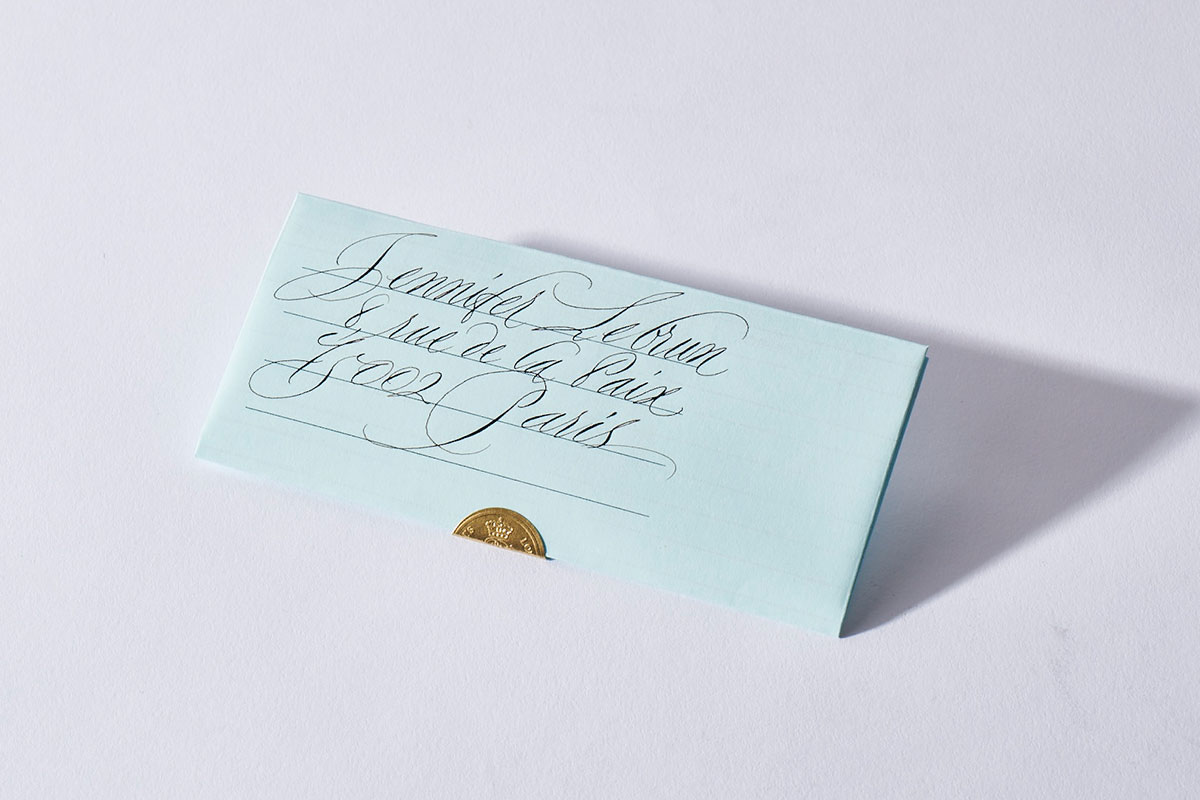 Jennifer Lebrun
8 rue de la Paix
75002 Paris